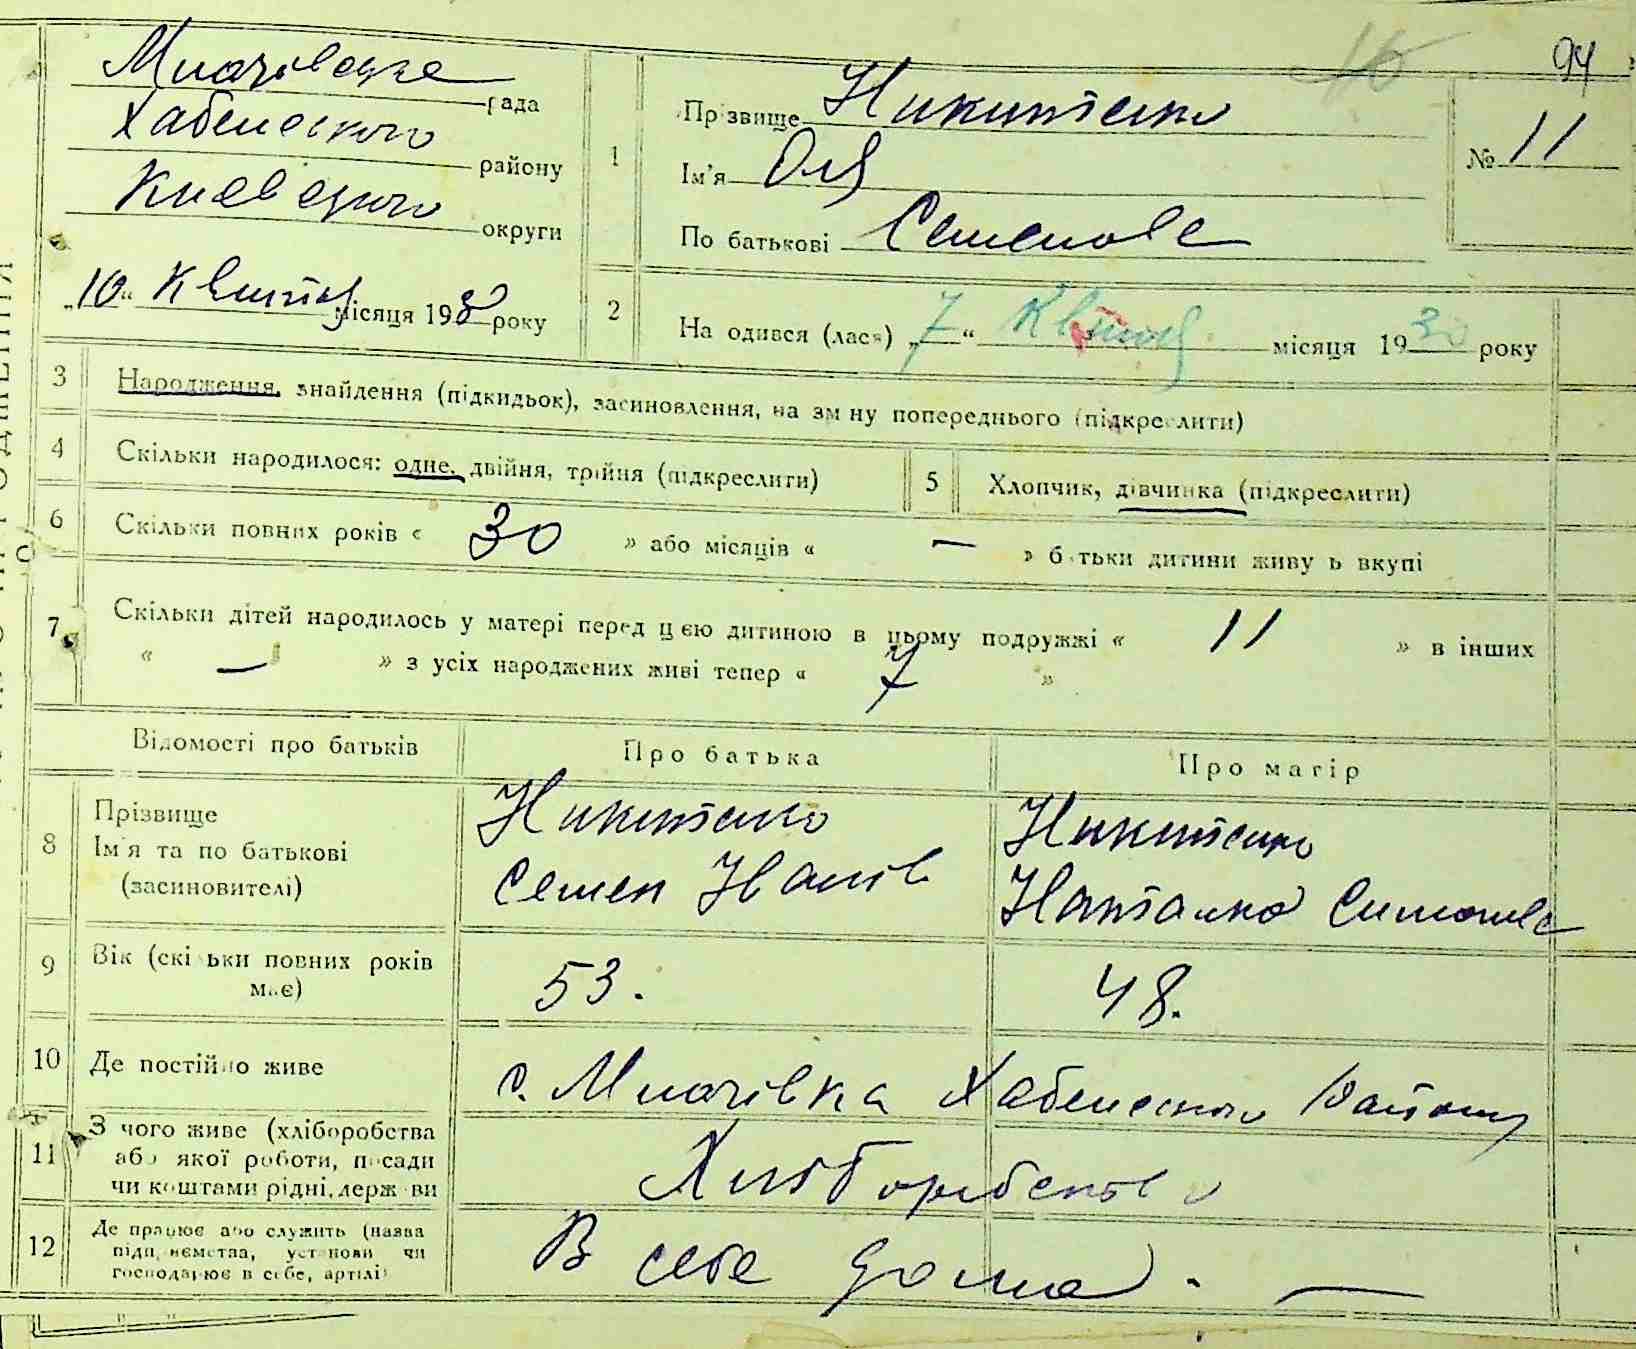 94
Млачівська рада
Хабенського району
Київського округи
„10“ Квітня місяця 1930 року
1
Прізвище Никитенко
Ім'я Оля
По батькові Семенова
№ 11
2
На одився (лася) „7“ Квітня місяця 1930 року
3 Народження, знайдення (підкидьок), засиновлення, на зміну попереднього (підкреслити)
4 Скільки народилося: одне, двійня, трійня (підкреслити)
5 Хлопчик, дівчинка (підкреслити)
6 Скільки повних років « 30 » або місяців « — » батьки дитини живуть вкупі
7 Скільки дітей народилось у матері перед цією дитиною в цьому подружжі « 11 » в інших
« — » з усіх народжених живі тепер « 7 »
Відомості про батьків
Про батька
Про матір
8
Прізвище
Ім'я та по батькові
(засиновителі)
Никитенко
Семен Іванів
Никитенко
Наталка Симонова
9
Вік (скільки повних років
має)
53.
48.
10 Де постійно живе
с. Млачівка Хабенського Району
11
З чого живе (хліборобства
або якої роботи, посади
чи коштами рідні, держави
Хліборобство
12
Де працює або служить (назва
підприємства, установи чи
господарює в себе, артілі)
В себе дома. —